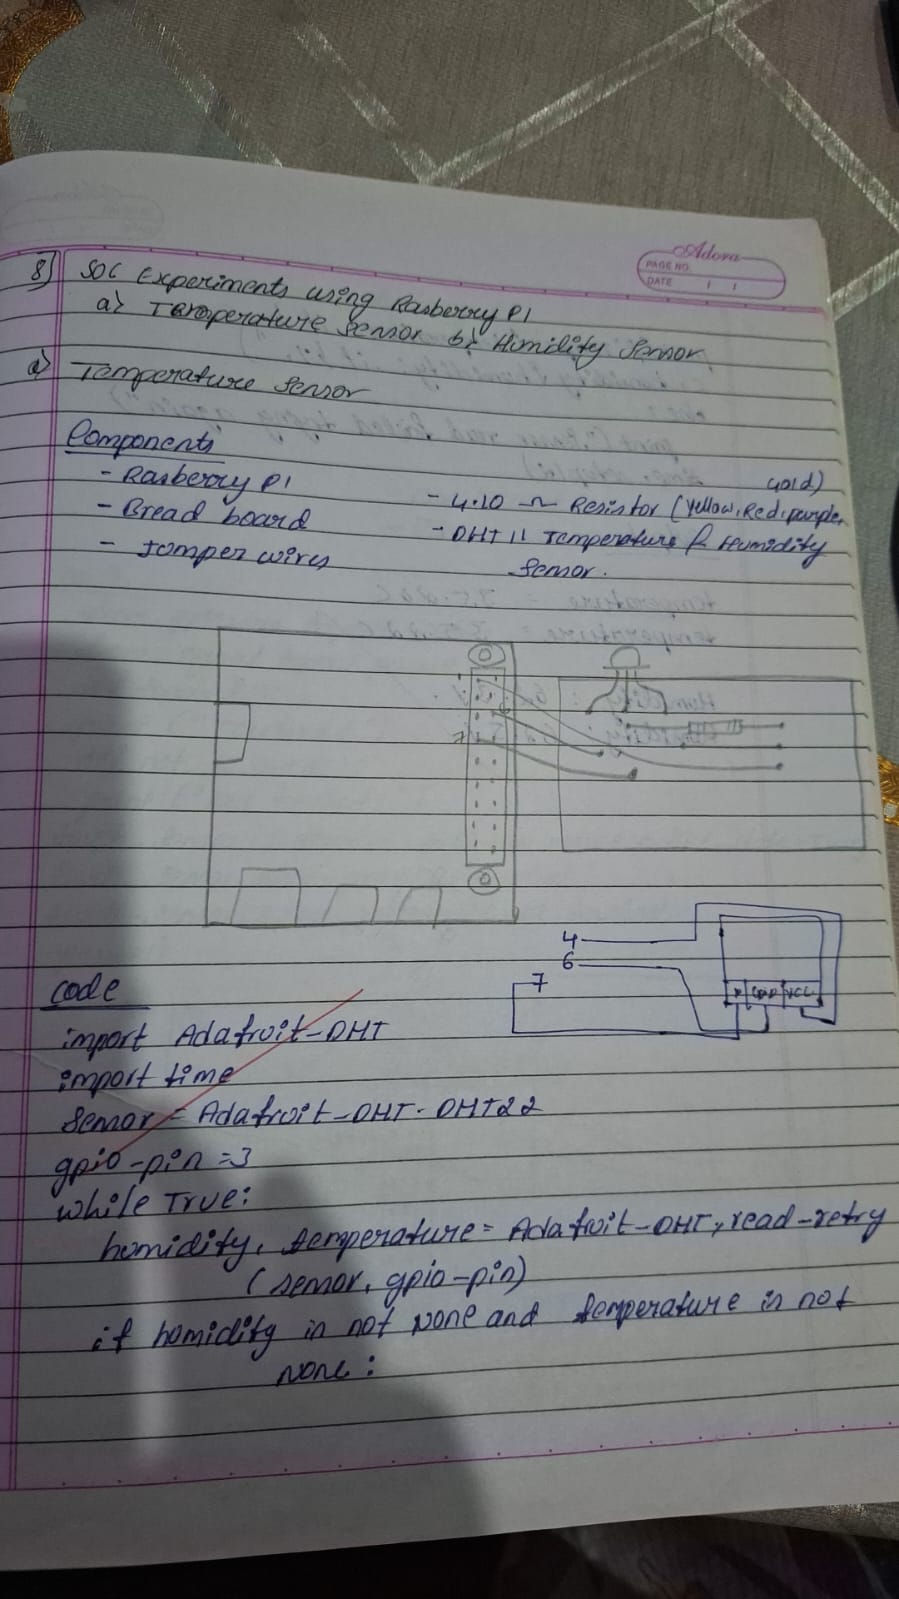 Adora
PAGE NO.
DATE / /
8) SOC Experiments using Rasberry PI
a) Temperature Sensor b) Humility Sensor
a) Temperature Sensor
Components
- Rasberry PI
- Bread board
- Jomper wires
- 4.10 Ω Resistor (Yellow, Red, purple, gold)
- DHT 11 Temperature & Humidity
Sensor.
7
4
6
7
GND VCC
Code
import Adafruit-DHT
import time
Sensor = Adafruit-DHT. DHT22
gpio-pin = 3
while True:
homidity, temperature = Adafruit-DHT, read-retry
(sensor, gpio-pin)
if homidity is not None and temperature is not
None: